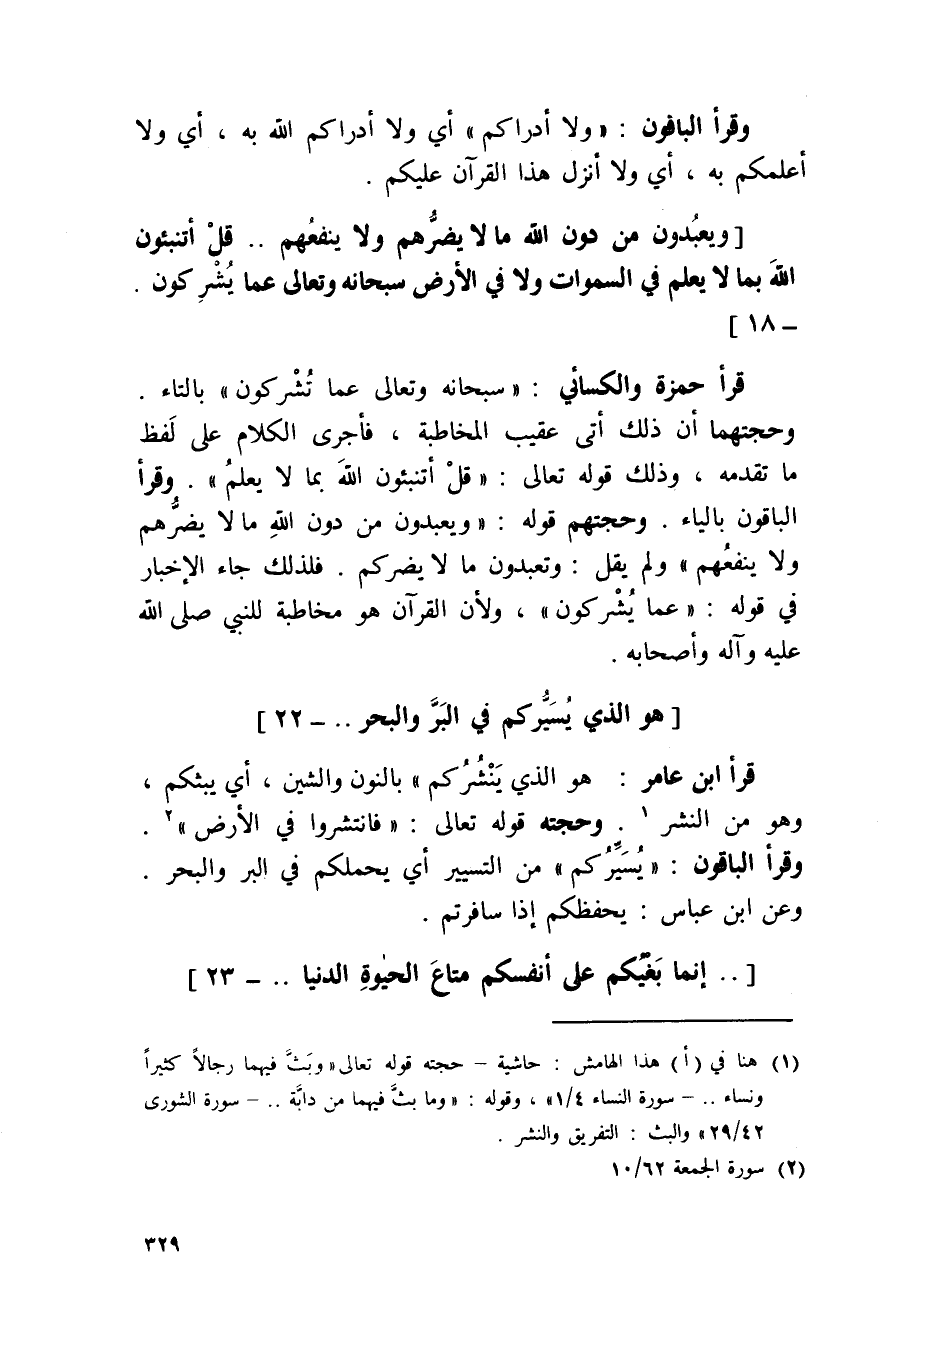 وقرأ الباقون : « ولا أدراكم » أي ولا أدراكم الله به ، أي ولا
أعلمكم به ، أي ولا أنزل هذا القرآن عليكم .
[ ويعبُدون من دون الله ما لا يضرُّهم ولا ينفعُهم .. قلْ أتنبئون
اللهَ بما لا يعلم في السموات ولا في الأرض سبحانه وتعالى عما يُشْرِكون .
– ١٨ ]
قرأ حمزة والكسائي : « سبحانه وتعالى عما تُشْركون » بالتاء .
وحجتهما أن ذلك أتى عقيب المخاطبة ، فأجرى الكلام على لَفظ
ما تقدمه ، وذلك قوله تعالى : « قلْ أتنبئون اللهَ بما لا يعلمُ » . وقرأ
الباقون بالياء . وحجتهم قوله : « ويعبدون من دون اللهِ ما لا يضرُّهم
ولا ينفعُهم » ولم يقل : وتعبدون ما لا يضركم . فلذلك جاء الإخبار
في قوله : « عما يُشْركون » ، ولأن القرآن هو مخاطبة للنبي صلى الله
عليه وآله وأصحابه .
[ هو الذي يُسَيُّركم في البَرَّ والبحر .. – ٢٢ ]
قرأ ابن عامر : هو الذي يَنْشُرُكم » بالنون والشين ، أي يبثكم ،
وهو من النشر ١ . وحجته قوله تعالى : « فانتشروا في الأرض »٢ .
وقرأ الباقون : « يُسَيِّرُكم » من التسيير أي يحملكم في البر والبحر .
وعن ابن عباس : يحفظكم إذا سافرتم .
[ .. إنما بَغيُكم على أنفسكم متاعَ الحيٰوةِ الدنيا .. – ٢٣ ]
(١) هنا في ( أ ) هذا الهامش : حاشية – حجته قوله تعالى « وبَثَّ فيهما رجالاً كثيراً
ونساء .. – سورة النساء ١/٤ » ، وقوله : « وما بثَّ فيهما من دابَّة .. – سورة الشورى
٢٩/٤٢ » والبث : التفريق والنشر .
(٢) سورة الجمعة ١٠/٦٢
٣٢٩